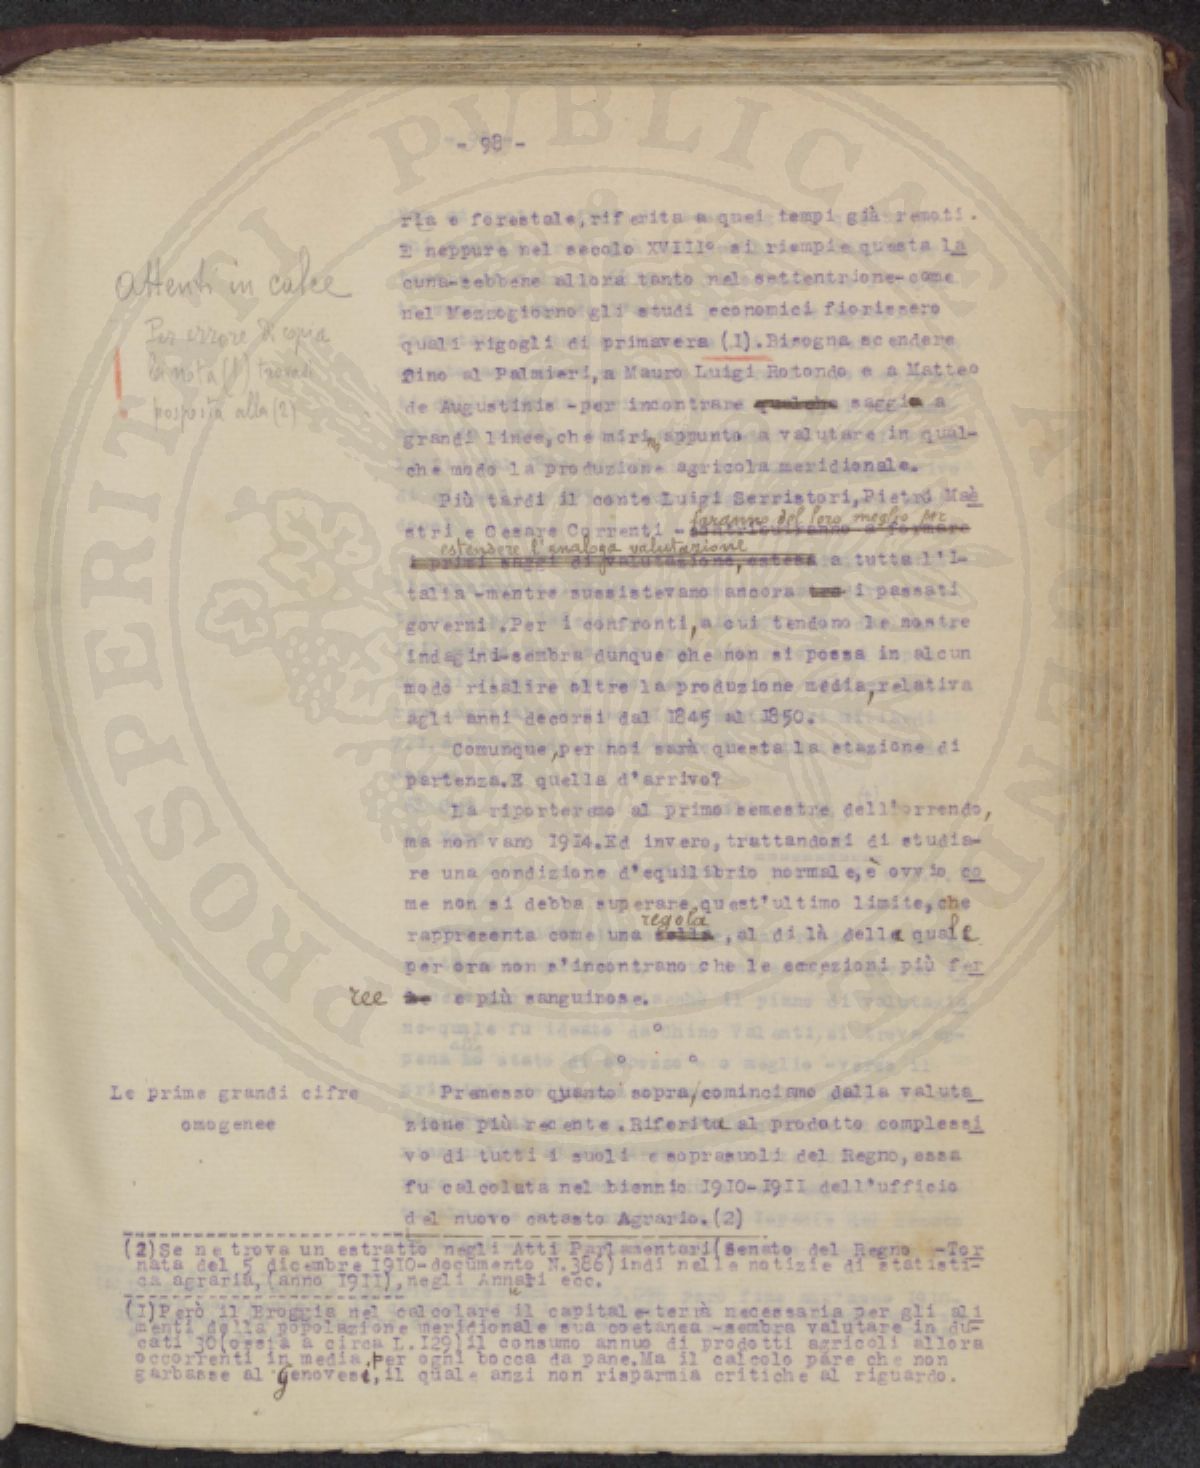 - 98 -
ria e forestale,riferita a quei tempi già remoti.
E neppure nel secolo XVIII° si riempie questa la
cuna-sebbene allora tanto nel settentrione-come
nel Mezzogiorno gli studi economici fiorissero
quali rigogli di primavera (1).Bisogna scendere
fino al Palmieri,a Mauro Luigi Rotondo e a Matteo
de Augustinis -per incontrare qualche saggio a
grandi linee,che miri appunto a valutare in qual-
che modo la produzione agricola meridionale.
Attenti in calce
Per errore di copia
la nota (1) trovasi
posposta alla (2)
Più tardi il conte Luigi Serristori,Pietro Maè
faranno del loro meglio per
stri e Cesare Correnti -contribuiranno a formare
estendere l'analoga valutazione
i primi saggi di valutazione,estesa a tutta l'I-
talia -mentre sussistevano ancora tra i passati
governi.Per i confronti,a cui tendono le nostre
indagini-sembra dunque che non si possa in alcun
modo risalire oltre la produzione media,relativa
agli anni decorsi dal 1845 al 1850.
Comunque,per noi sarà questa la stazione di
partenza.E quella d'arrivo?
La riporteremo al primo semestre dell'orrendo,
ma non vano 1914.Ed invero,trattandosi di studia-
re una condizione d'equilibrio normale,è ovvio co
me non si debba superare quest'ultimo limite,che
regola
rappresenta come una ,al di là della quale
per ora non s'incontrano che le eccezioni più fer
ree e più sanguinose.
Le prime grandi cifre
omogenee
Premesso quanto sopra,cominciamo dalla valuta
zione più recente.Riferita al prodotto complessi
vo di tutti i suoli e soprasuoli del Regno,essa
fu calcolata nel biennio 1910-1911 dell'ufficio
del nuovo catasto Agrario.(2)
(2)Se ne trova un estratto negli Atti Parlamentari(Senato del Regno -Tor
nata del 5 dicembre 1910-documento N.386)indi nelle notizie di statisti-
ca agraria,(anno 1911),negli Annali ecc.
(1)Però il Broggia nel calcolare il capitale-terra necessaria per gli ali
menti della popolazione meridionale sua coetanea -sembra valutare in du-
cati 30(ossia a circa L.129)il consumo annuo di prodotti agricoli allora
occorrenti in media,per ogni bocca da pane.Ma il calcolo pare che non
garbasse al genovesi,il quale anzi non risparmia critiche al riguardo.
PROSPERITI PUBLICAE AUGENDAE